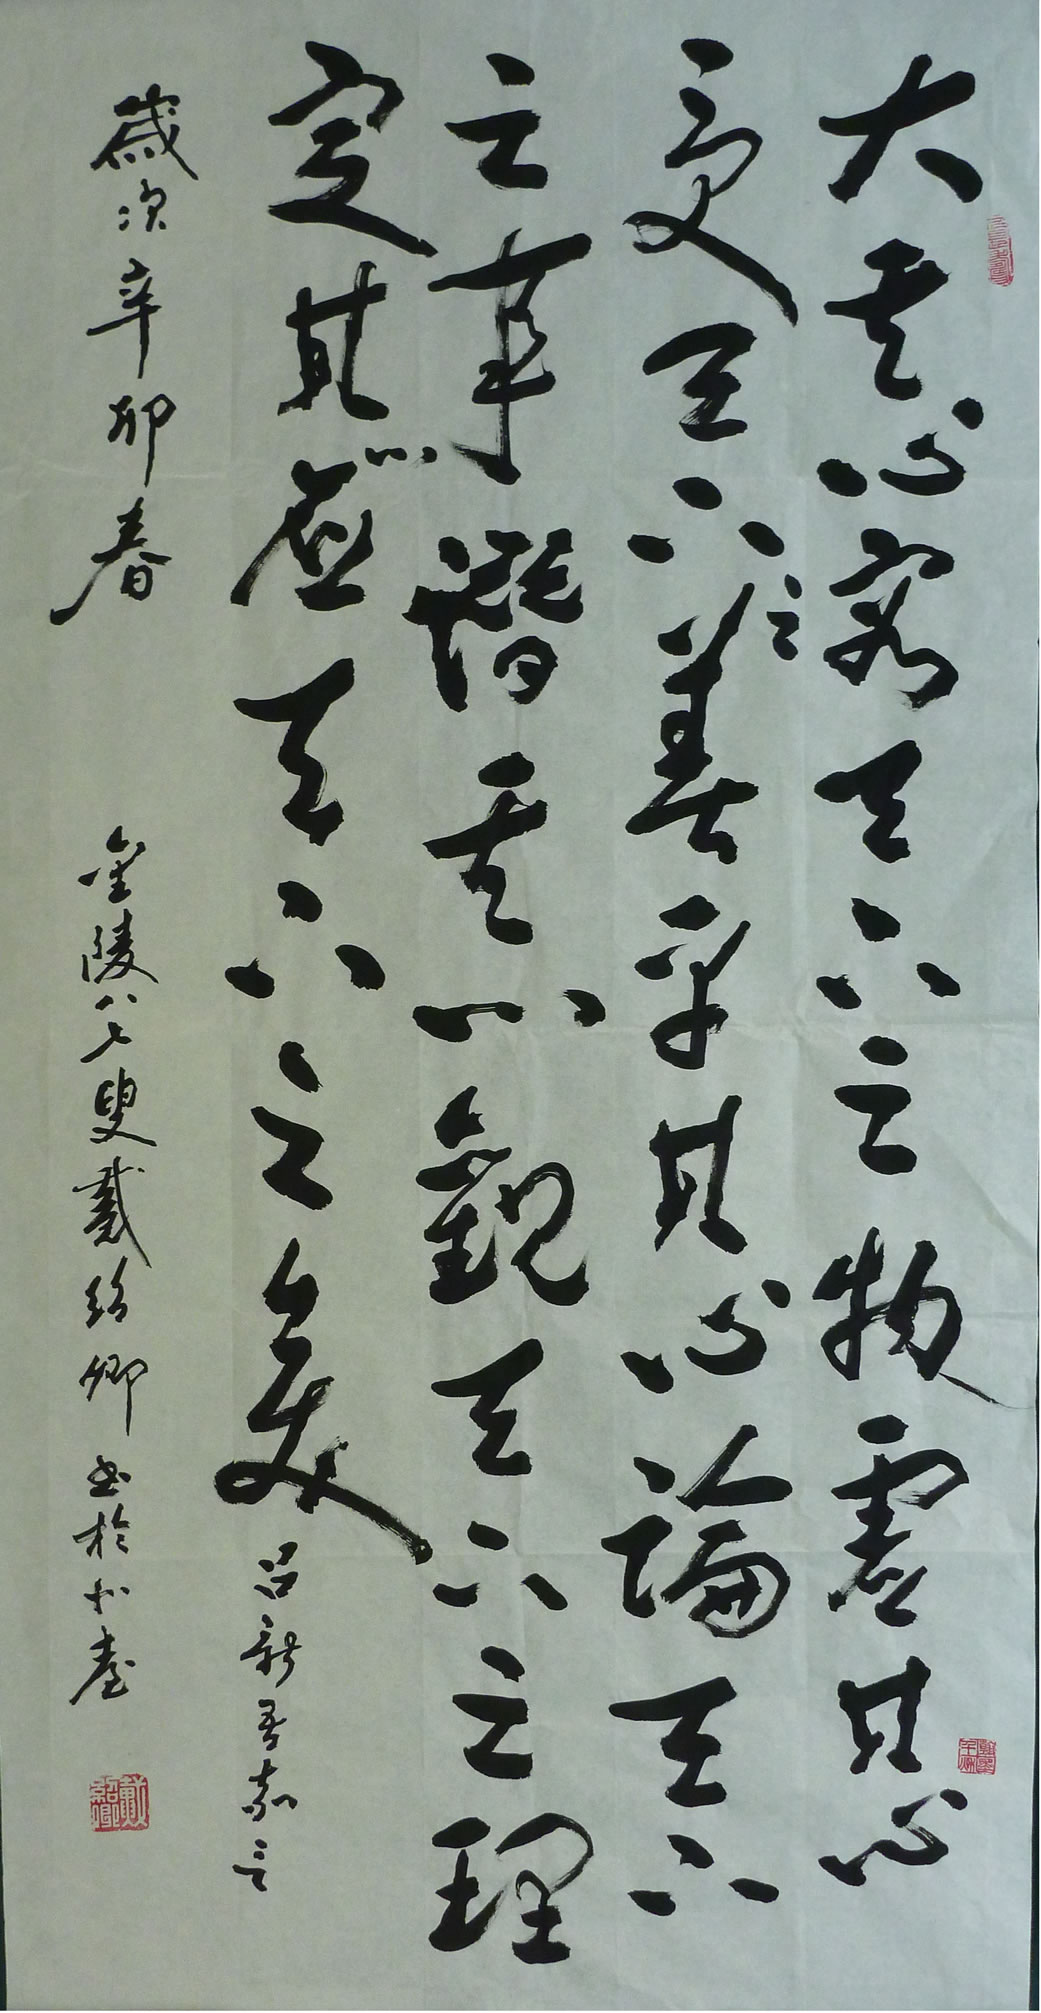 大其心容天下之物虛其心
受天下之善平其心論天下
之事潛其心觀天下之理
定其心應天下之變
呂新吾嘉言
歲次辛卯春
金陵八七叟戴紹卿書於水臺
戴紹卿